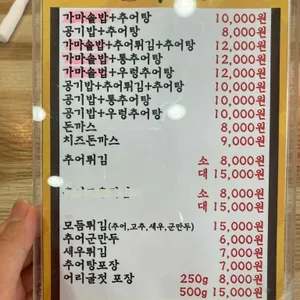 가마솥밥+추어탕 10,000원
공기밥+추어탕 8,000원
가마솥밥+추어튀김+추어탕 12,000원
가마솥밥+통추어탕 12,000원
가마솥법+우렁추어탕 12,000원
공기밥+추어튀김+추어탕 10,000원
공기밥+통추어탕 10,000원
공기밥+우렁추어탕 10,000원
돈까스 8,000원
치즈돈까스 9,000원
추어튀김 소 8,000원
대 15,000원
소 8,000원
대 15,000원
모듬튀김(추어,고추,새우,군만두) 15,000원
추어군만두 6,000원
새우튀김 7,000원
추어탕포장 7,000원
어리굴젓 포장 250g 8,000원
500g 15,000원